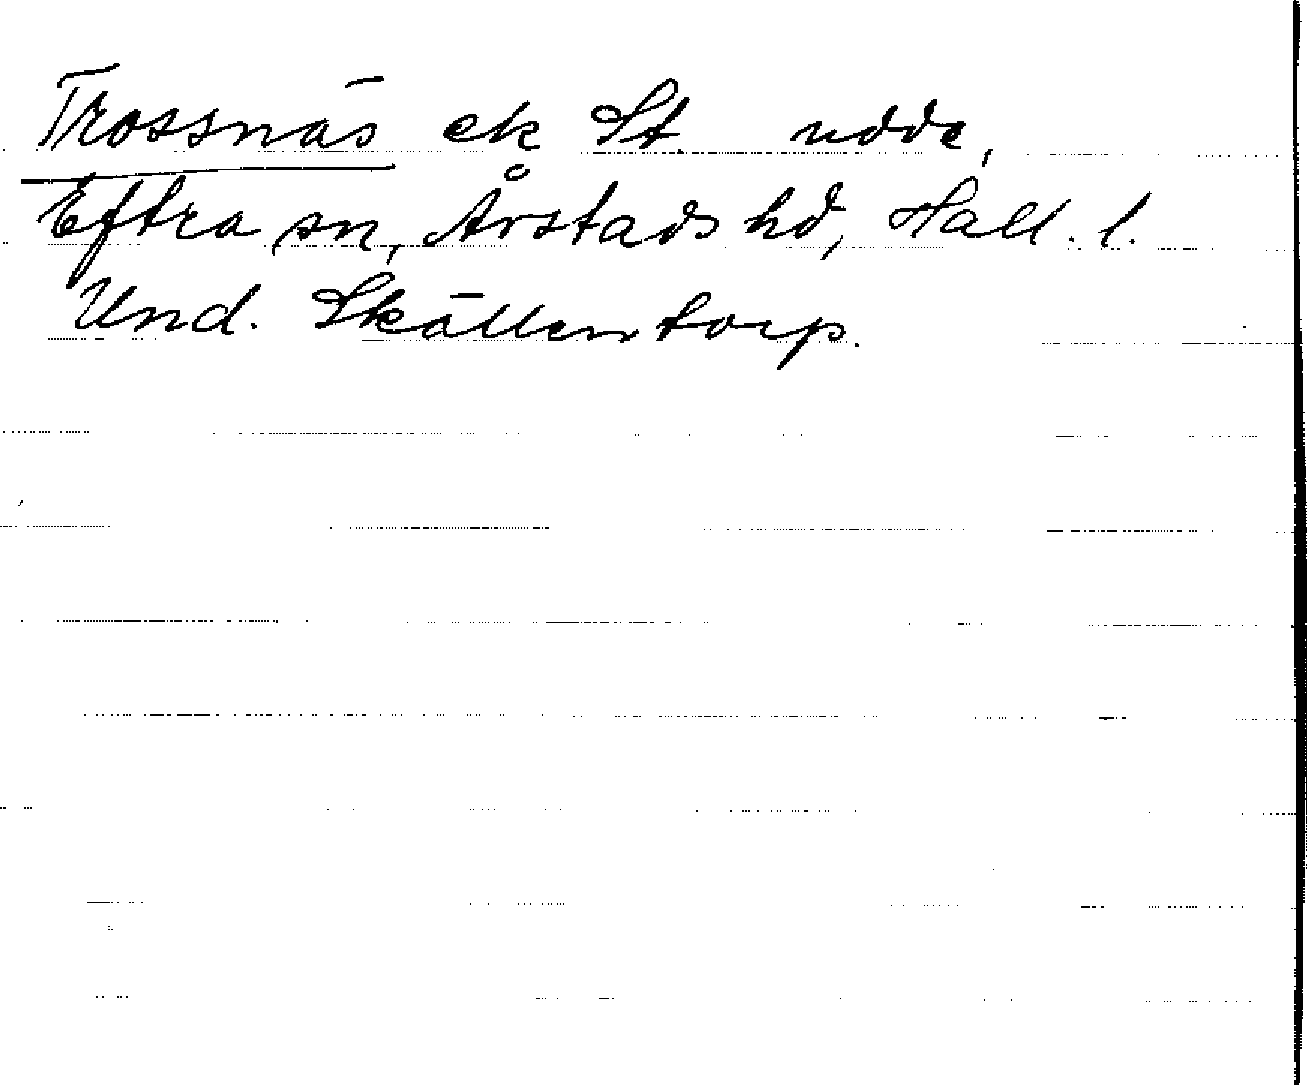 Trossnäs ek St. udde,
Eftra sn, Årstads hd, Hall. l.
Und. Skällentorp.